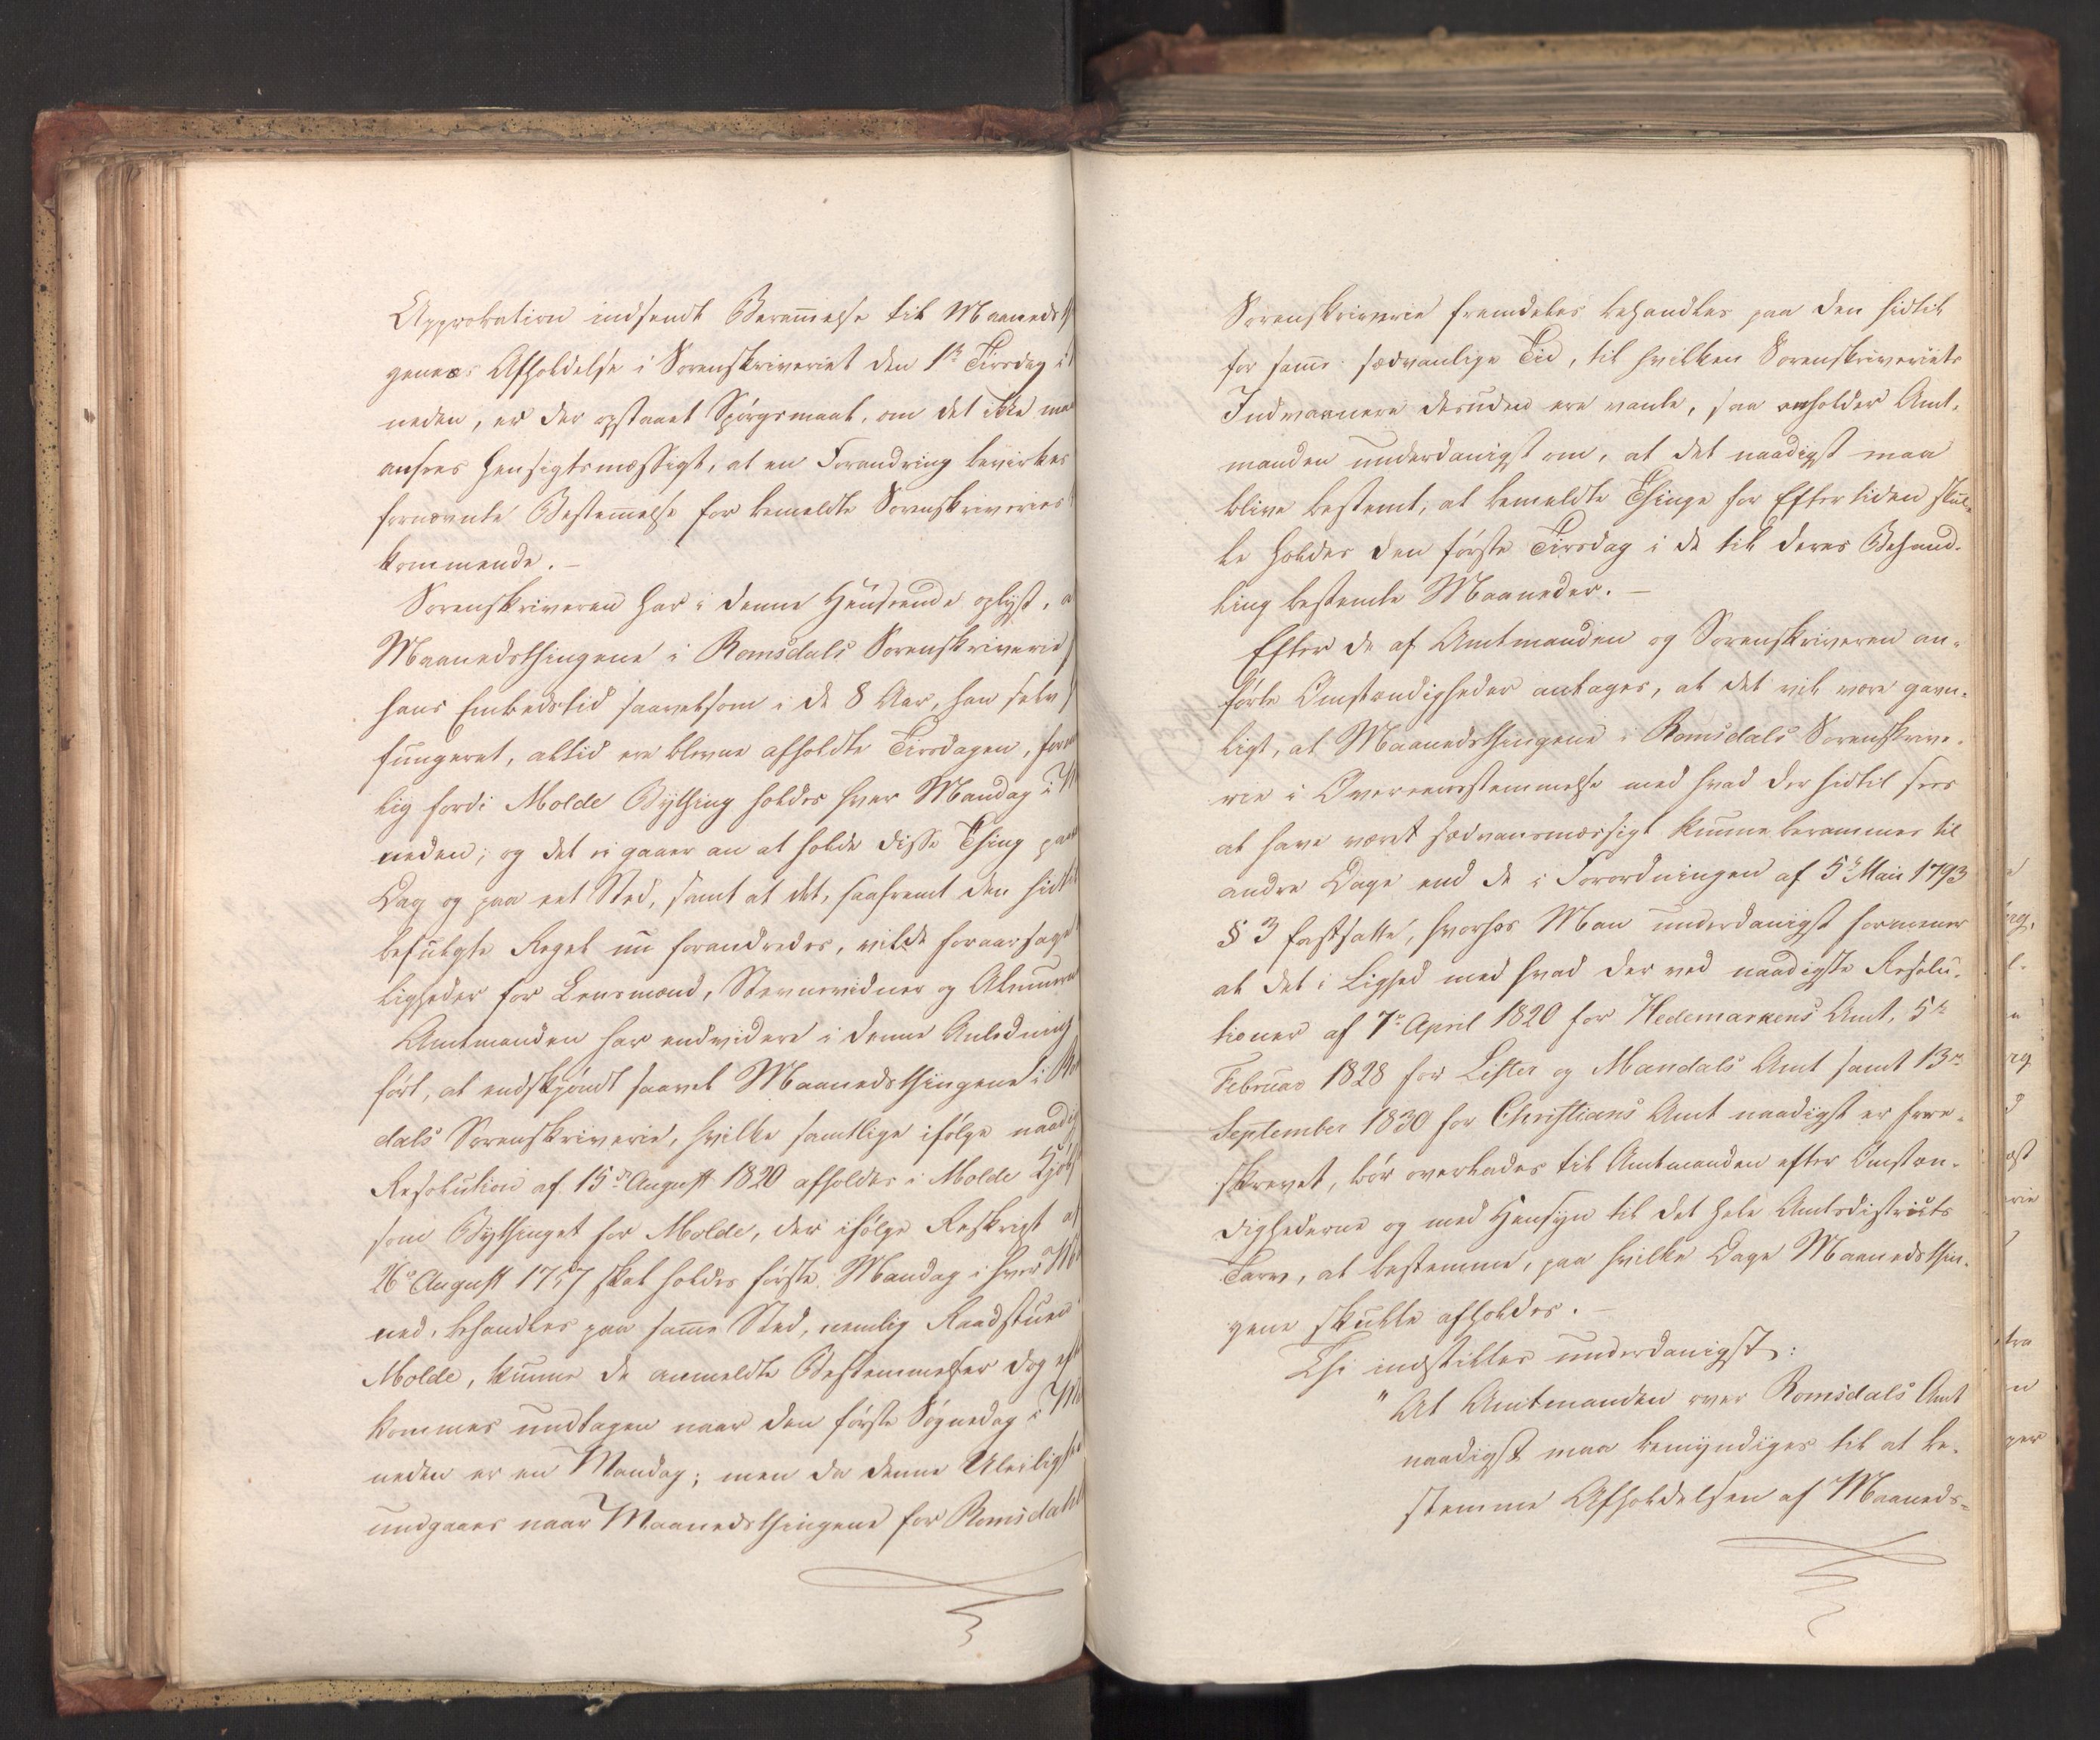 Approbation indsendt Berammelse til Maanedsth
genes Afholdelse i Sorenskriveriet den 1ste Tirsdag i
neden, er der opstaaet Spørgsmaal, om det ikke maa
ansees hensigtsmæssigt, at en Forandring bevirkes
fornævnte Bestemmelse for bemeldte Sorenskriveries
kommende. –
Sorenskriveren har i denne Henseende oplyst, a
Maanedsthingene i Romsdals Sorenskriverie
hans Embedstid saavelsom i de 8 Aar, han selv
fungeret, altid ere blevne afholdte Tirsdagen,
lig fordi Molde Bything holdes hver Mandag i M
neden, og det ei gaaer an at holde disse Thing paa
Dag og paa eet Sted, samt at det, saafremt den hidtil
befulgte Regel nu forandredes, vilde foraarsage
ligheder for Lensmænd, Stevnevidner og Almuen
Amtmanden har endvidere i denne Anledning
ført, at endskjøndt saavel Maanedsthingene i Ro
dals Sorenskriverie, hvilke samtlige ifølge naadig
Resolution af 15de August 1820 afholdes i Molde Kjøb
som Bythinget for Molde, der ifølge Reskript af
26de August 1757 skal holdes første Mandag i hver Ma
ned, behandles paa samme Sted, nemlig Raadstuen
Molde, kunne de anmeldte Bestemmelser dog eft
kommes undtagen naar den første Søgnedag i Ma
neden er en Mandag; men da denne Uleilighe
undgaaes naar Maanedsthingene for Romsdals
Sorenskriverie fremdeles behandles paa den hidtil
for samme sædvanlige Tid, til hvilken Sorenskriveriets
Indvaanere desuden ere vante, saa anholder Amt-
manden underdanigst om, at det naadigst maa
blive bestemt, at bemeldte Thinge for Eftertiden skul-
le holdes den første Tirsdag i de til deres Behand-
ling bestemte Maaneder. –
Efter de af Amtmanden og Sorenskriveren an-
førte Omstændigheder antages, at det vil være gavn-
ligt, at Maanedsthingene i Romsdals Sorenskrive-
rie i Overeensstemmelse med hvad der hidtil sees
at have været sædvansmæssigt kunne berammes til
andre Dage end de i Forordningen af 5te Maii 1793
§ 3 fastsatte, hvorhos Man underdanigst formener
at det i Lighed med hvad der ved naadigste Resolu-
tioner af 7de April 1820 for Hedemarkens Amt, 5te
Februar 1828 for Lister og Mandals Amt samt 13de
September 1830 for Christians Amt naadigst er fore-
skrevet, bør overlades til Amtmanden efter Omstæn-
dighederne og med Hensyn til det hele Amtsdistricts
Tarv, at bestemme, paa hvilke Dage Maanedsthin-
gene skulle afholdes. –
Thi indstilles underdanigst:
"At Amtmanden over Romsdals Amt
naadigst maa bemyndiges til at be-
stemme Afholdelsen af Maaneds-